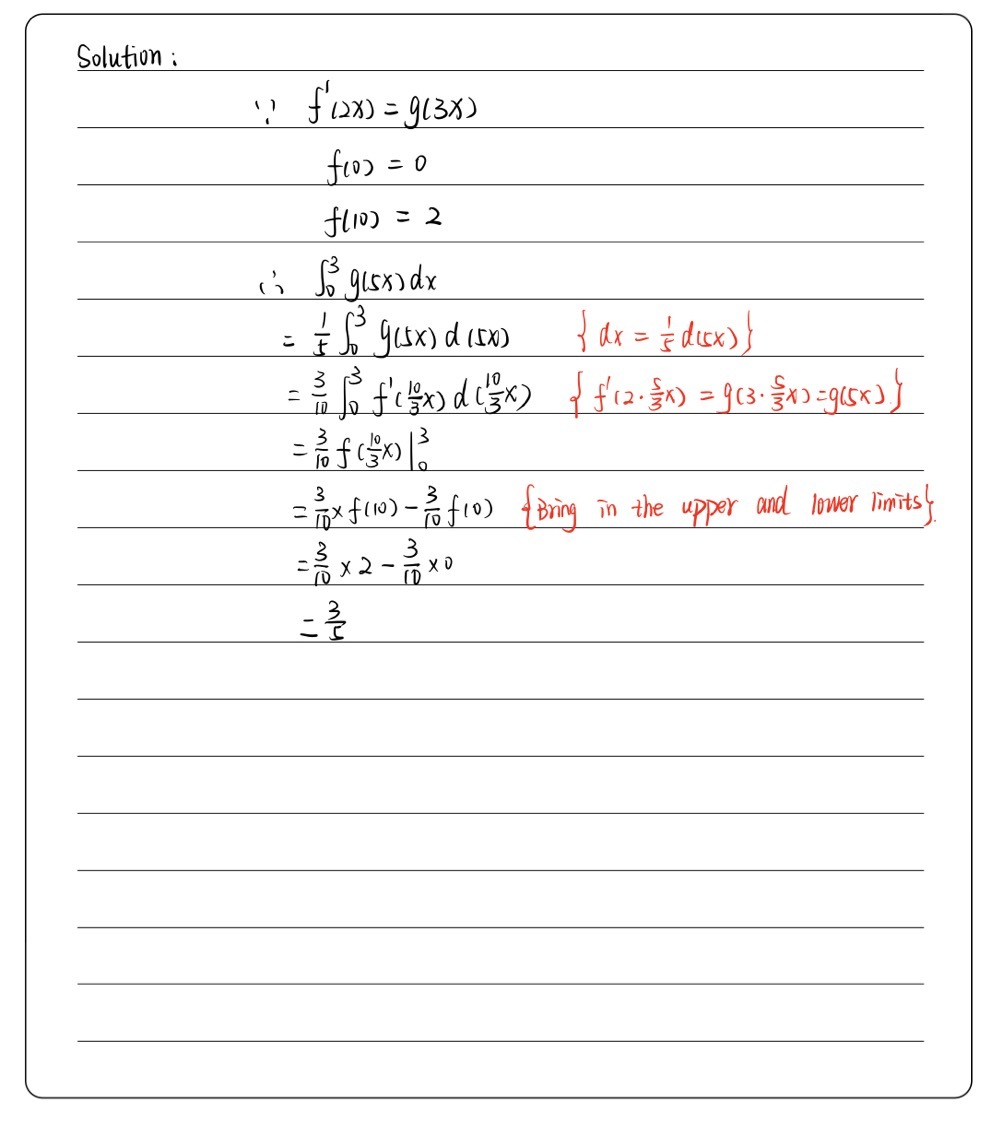 Solution:
∵ f'(2x) = g(3x)
f(0) = 0
f(10) = 2
∴ ∫₀³ g(5x) dx
= 1/5 ∫₀³ g(5x) d(5x) { dx = 1/5 d(5x) }
= 3/10 ∫₀³ f'(10/3 x) d(10/3 x) { f'(2·5/3 x) = g(3·5/3 x) = g(5x) }
= 3/10 f(10/3 x) |₀³
= 3/10 × f(10) − 3/10 f(0) {Bring in the upper and lower limits}.
= 3/10 × 2 − 3/10 × 0
= 3/5